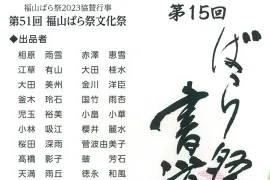 福山ばら祭2023協賛行事
第51回 福山ばら祭文化祭
◆出品者
相原 雨雪 赤澤 恵雪
江草 有山 大田 桂水
大田 美州 金川 洋臣
釜木 玲石 国竹 雨杏
児玉 裕美 小畠 小華
小林 吸江 櫻井 麗水
桜田 深雨 菅波由美子
高橋 影子 皷 芳石
天満 雨丘 徳永 和風
第15回
ばら祭
書道